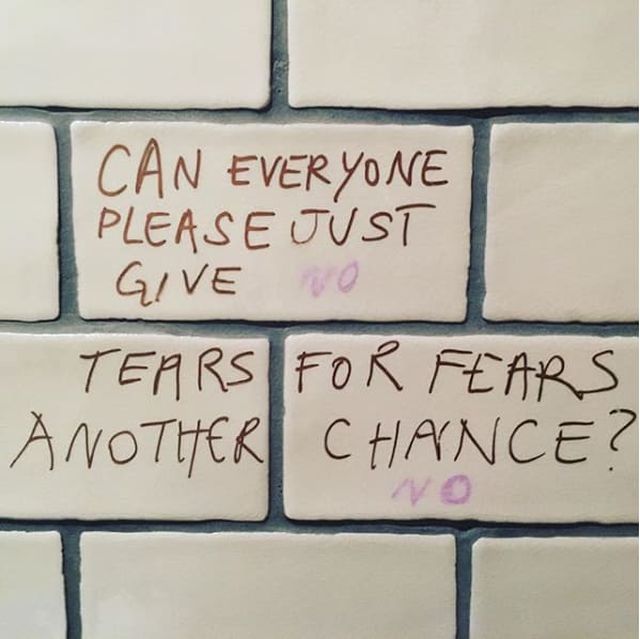 CAN EVERYONE
PLEASE JUST
GIVE NO
TEARS FOR FEARS
ANOTHER CHANCE?
NO